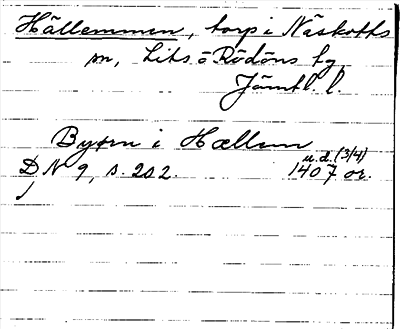 Hällemmen, torp i Näskotts
sn, Lits o Rödöns tg
Jämtl. l.
Byørn i Hællem
u.d. (3/4)
DN 9, s. 202. 1407 or.